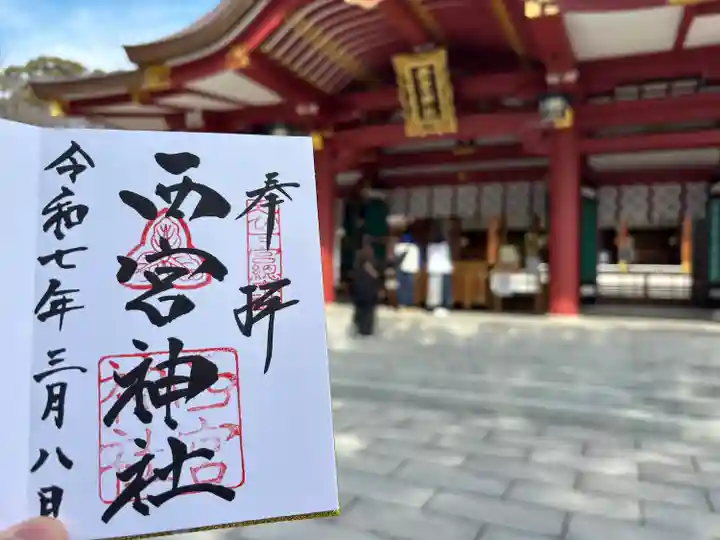 奉拝
西宮神社
令和七年三月八日